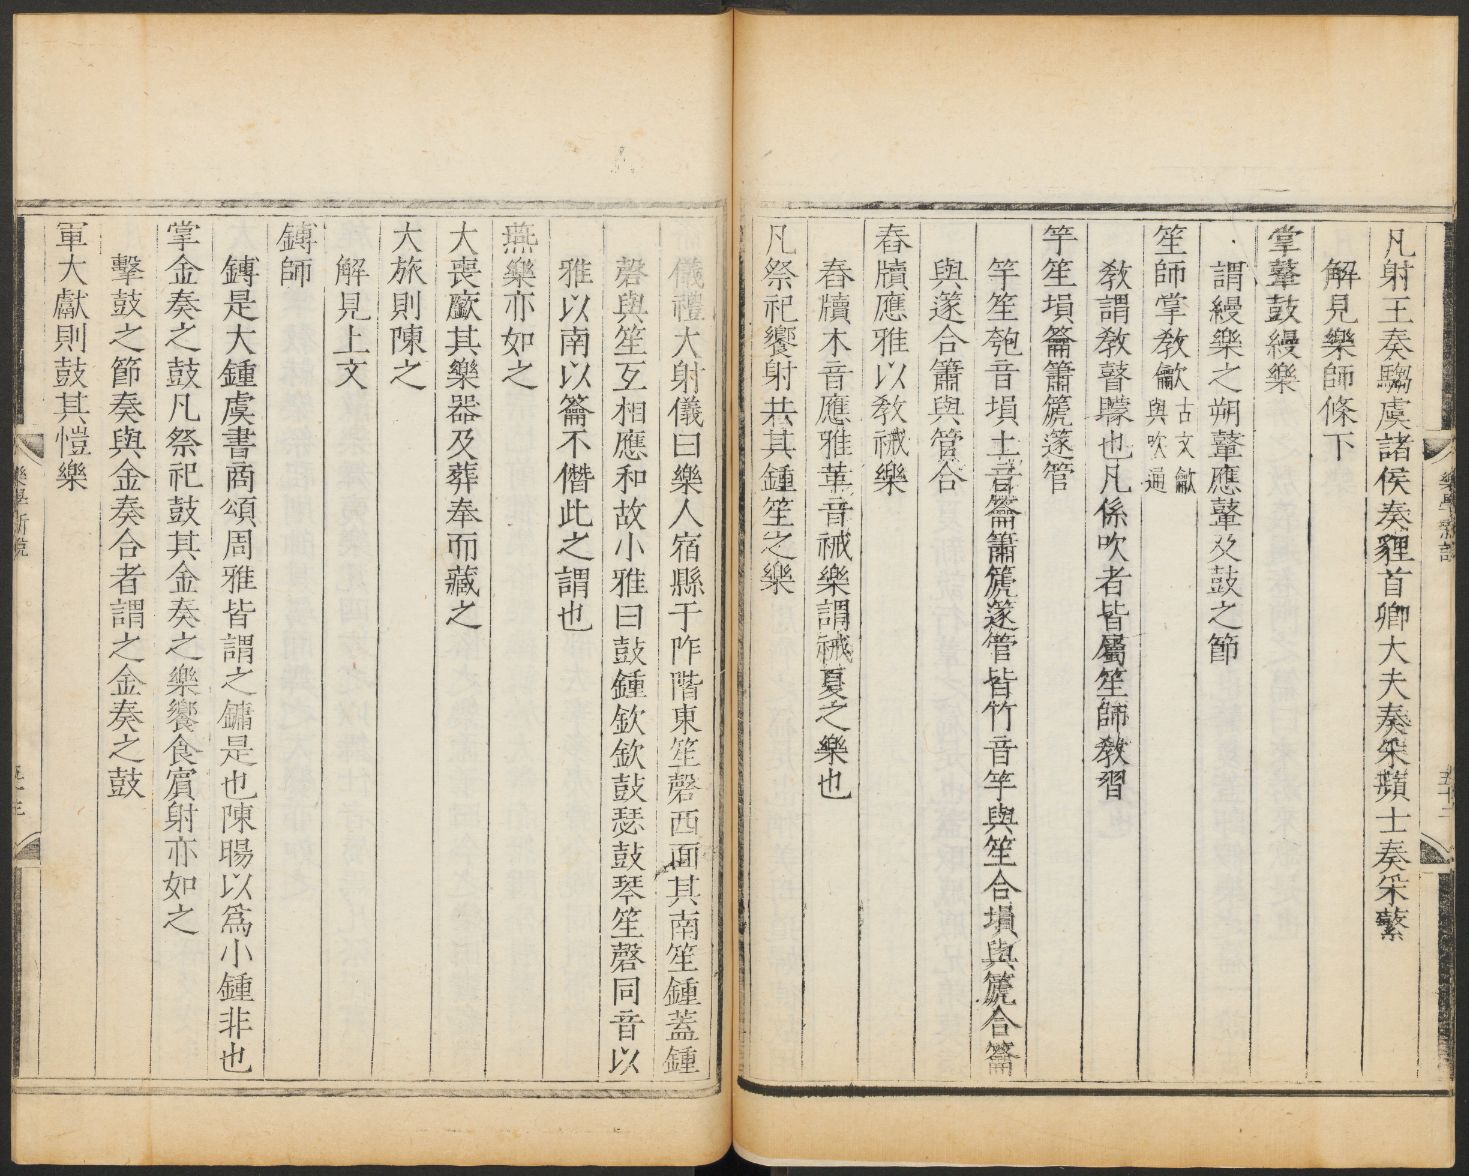 凡射王奏騶虞諸侯奏貍首卿大夫奏采蘋士奏采蘩
解見樂師條下
掌鼙鼓縵樂
謂縵樂之朔鼙應鼙及鼓之節
笙師掌敎龡古文龡與吹通
敎謂敎瞽矇也凡係吹者皆屬笙師敎習
竽笙塤籥簫篪篴管
竽笙匏音塤土音籥簫篪篴管皆竹音竽與笙合塤與篪合籥
與篴合簫與管合
舂牘應雅以敎祴樂
舂牘木音應雅革音祴樂謂祴夏之樂也
凡祭祀饗射共其鍾笙之樂
儀禮大射儀曰樂人宿縣于阼階東笙磬西面其南笙鍾蓋鍾
磬與笙互相應和故小雅曰鼓鍾欽欽鼓瑟鼓琴笙磬同音以
雅以南以籥不僭此之謂也
燕樂亦如之
大喪廞其樂器及葬奉而藏之
大旅則陳之
解見上文
鎛師
鎛是大鍾虞書商頌周雅皆謂之鏞是也陳暘以爲小鍾非也
掌金奏之鼓凡祭祀鼓其金奏之樂饗食賓射亦如之
擊鼓之節奏與金奏合者謂之金奏之鼓
軍大獻則鼓其愷樂
樂學新說